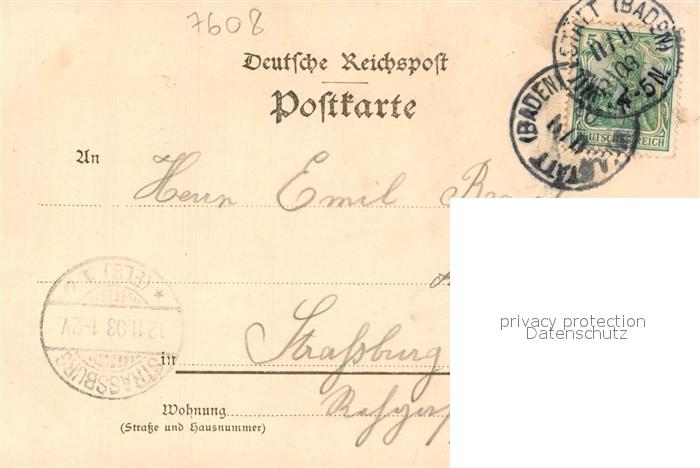 7608
Deutsche Reichspost
Postkarte
An
Herrn Emil
Straßburg
in
Wohnung
(Straße und Hausnummer)
(BADEN)
11 11 03
4-5N
(BADEN)
5
DEUTSCHES REICH
* (ELS) 1
12.11.03 1-2V.
STRASSBURG
privacy protection
Datenschutz